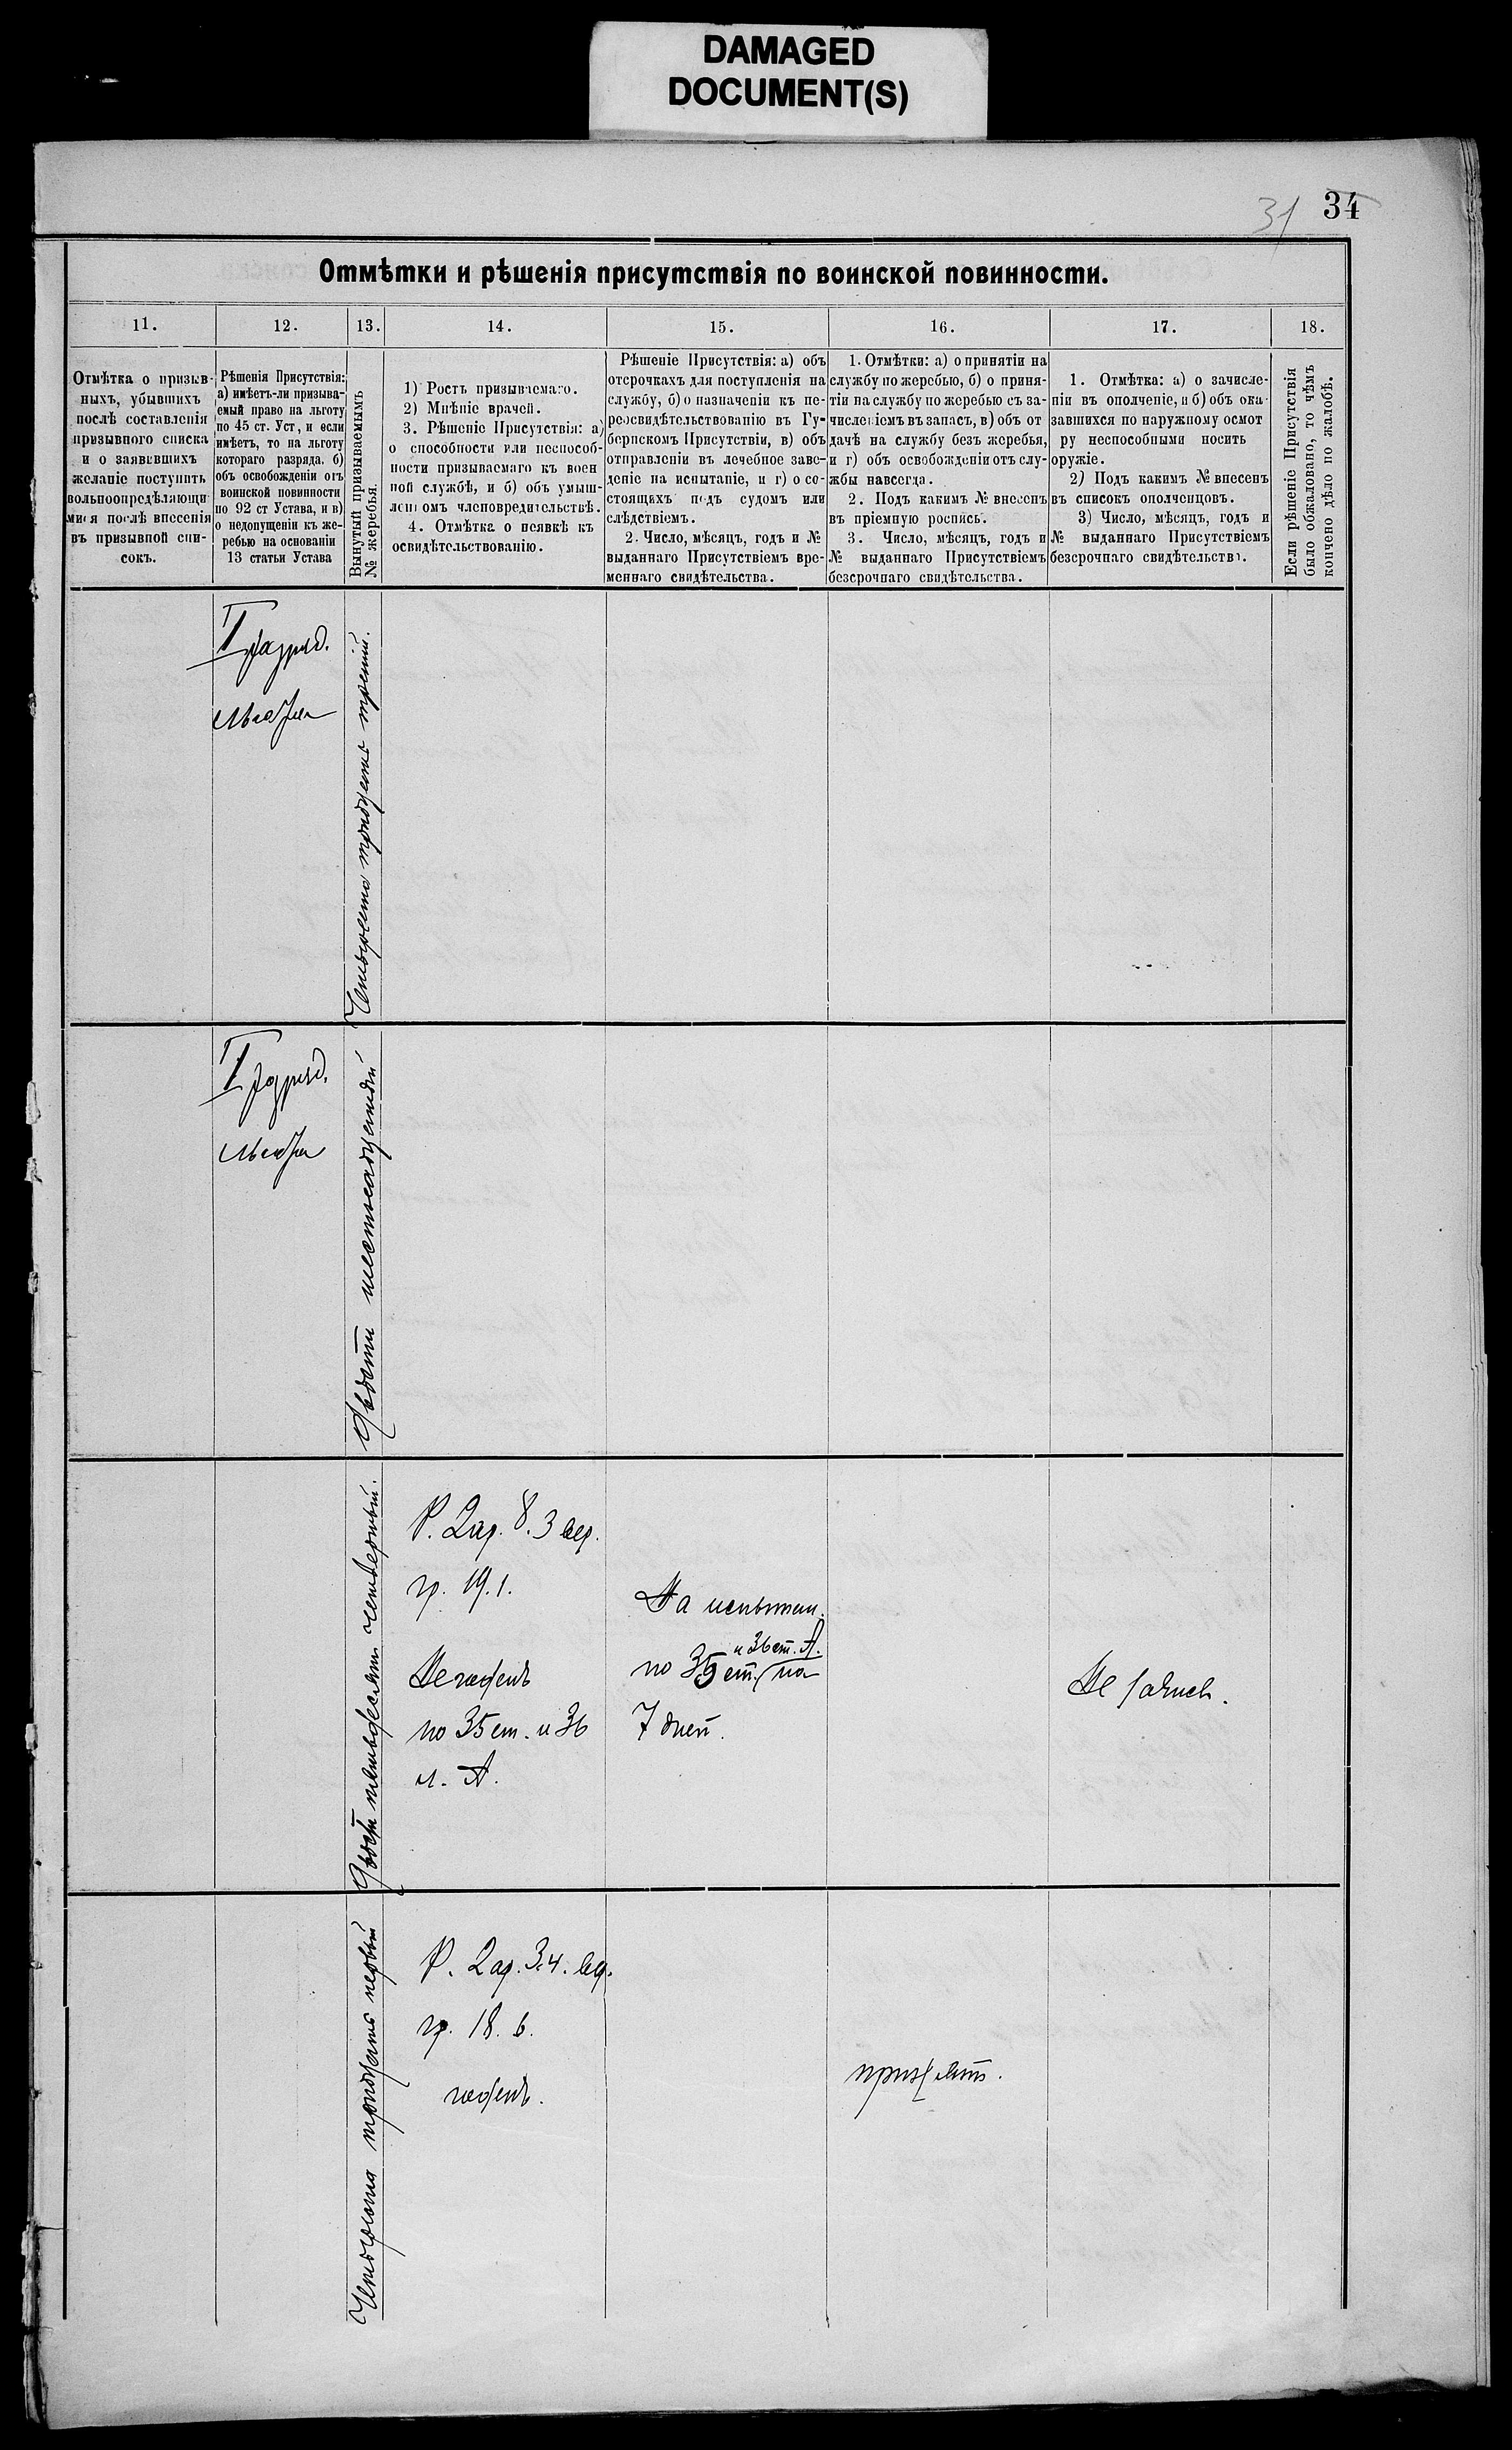 DAMAGED
DOCUMENT(S)
31 34
Отмѣтки и рѣшенія присутствія по воинской повинности.
11. 12. 13. 14. 15. 16. 17. 18.
Отмѣтка о призыв-
ныхъ, убывшихъ
послѣ составленія
призывного списка
и о заявившихъ
желаніе поступить
вольноопредѣляющи
мися послѣ внесенія
въ призывной спи-
сокъ.
Рѣшенія Присутствія:
а) имѣетъ-ли призыва-
емый право на льготу
по 45 ст. Уст, и если
имѣетъ, то на льготу
котораго разряда. б)
объ освобожденіи отъ
воинской повинности
по 92 ст Устава, и в)
о недопущеніи къ же-
ребью на основаніи
13 статьи Устава
Вынутый призываемымъ
№ жеребья.
1) Ростъ призываемаго.
2) Мнѣніе врачей.
3. Рѣшеніе Присутствія: а)
о способности или неспособ-
ности призываемаго къ воен
ной службѣ, и б) объ умыш-
ленномъ членовредительствѣ.
4. Отмѣтка о неявкѣ къ
освидѣтельствованію.
Рѣшеніе Присутствія: а) объ
отсрочкахъ для поступленія на
службу, б) о назначеніи къ пе-
реосвидѣтельствованію въ Гу-
бернскомъ Присутствіи, в) объ
отправленіи въ лечебное заве-
деніе на испытаніе, и г) о со-
стоящихъ подъ судомъ или
слѣдствіемъ.
2. Число, мѣсяцъ, годъ и №
выданнаго Присутствіемъ вре-
меннаго свидѣтельства.
1. Отмѣтки: а) о принятіи на
службу по жеребью, б) о приня-
тіи на службу по жеребью съ за-
численіемъ въ запасъ, в) объ от
дачѣ на службу безъ жеребья,
и г) объ освобожденіи отъ слу-
жбы навсегда.
2. Подъ какимъ № внесенъ
въ пріемную роспись.
3. Число, мѣсяцъ, годъ и
№ выданнаго Присутствіемъ
безсрочнаго свидѣтельства.
1. Отмѣтка: а) о зачисле-
ніи въ ополченіе, и б) объ ока
завшихся по наружному осмот
ру неспособными носить
оружіе.
2) Подъ какимъ № внесенъ
въ списокъ ополченцовъ.
3) Число, мѣсяцъ, годъ и
№ выданнаго Присутствіемъ
безсрочнаго свидѣтельства.
Если рѣшеніе Присутствія
было обжаловано, то чѣмъ
кончено дѣло по жалобѣ.
I разряд.
льгота
Четыреста тридцать третій.
I разряд.
льгота
Двѣсти шестнадцатый
Двѣсти пятьдесят четвертый.
Р. 2 ар. 8. 3 вер.
гр. 19. 1.
Не годенъ
по 35 ст. и 36
л. А.
На испытан.
и 36 ст. А.
по 35 ст. на
7 дней.
Не зачисл.
Четыреста тридцать первый
Р. 2 ар. 3. 4. вер.
гр. 18. 6.
годенъ.